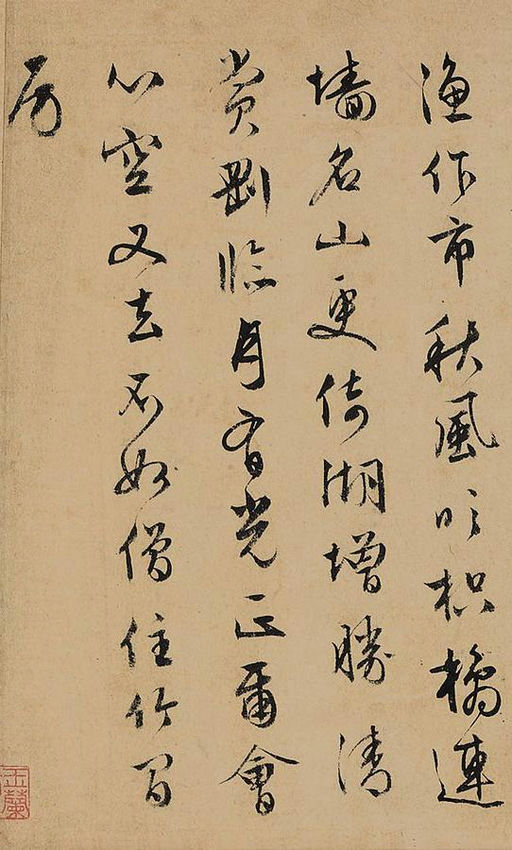 漁作市秋風吹枳橘連
墻名山更倚湖增勝清
賞剛臨月有光正爾會
心空又去不如僧住竹間
房
玉蘭